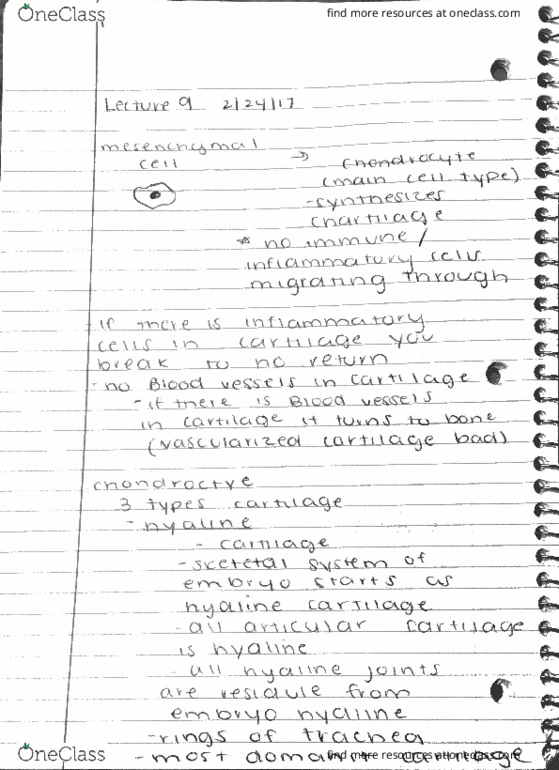 OneClass
find more resources at oneclass.com
Lecture 9 2/24/17
mesenchymal
cell
→ chondrocyte
(main cell type)
-synthesizes
chartilage
* no immune/
inflammatory cells
migrating through
if there is inflammatory
cells in cartilage you
break to no return
-no Blood vessels in cartilage
-if there is Blood vessels
in cartilage it turns to bone
(vascularized cartilage bad)
chondroctye
3 types cartilage
-hyaline
- cartilage
-skeletal system of
embryo starts as
hyaline cartilage
-all articular cartilage
is hyaline
-all hyaline joints
are residule from
embryo hyaline
-rings of trachea
-most
OneClass
find more resources at oneclass.com